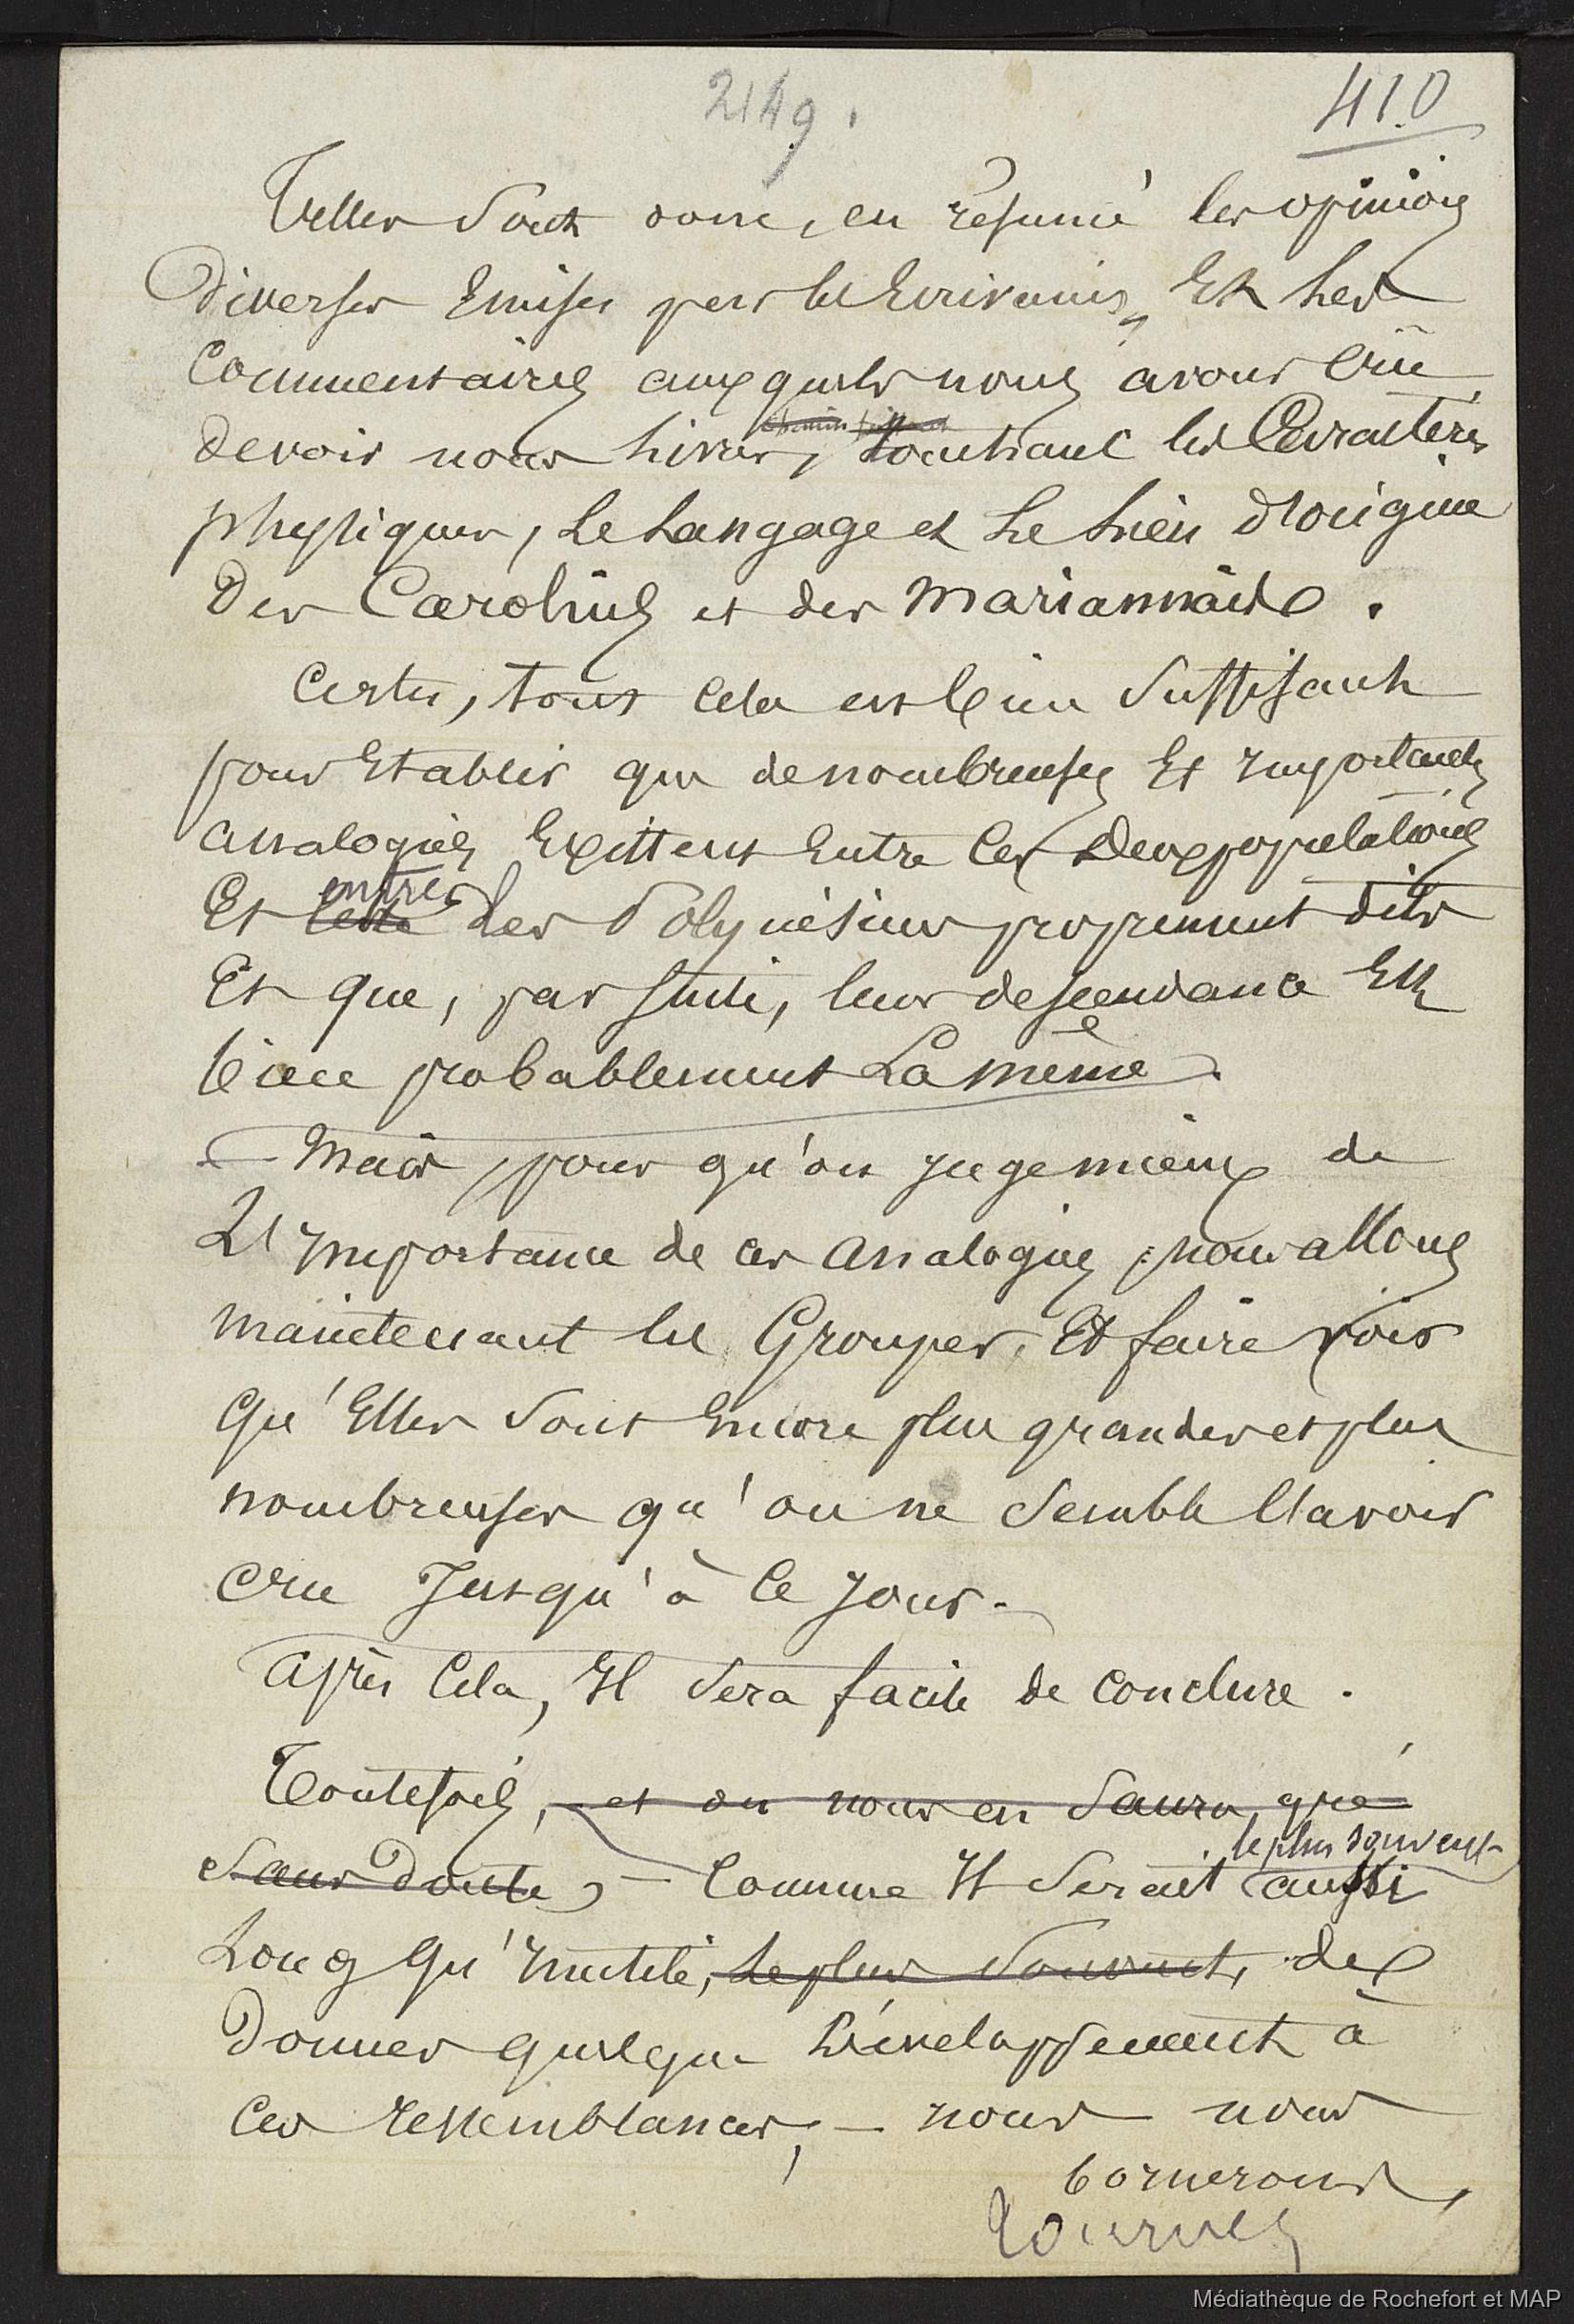 2149.
410
Telles sont donc, en résumé les opinions
diverses Emises par les Ecrivains, Et les
Commentaires auxquels nous avons Crû
devoir nous livrer, touchant les Caractères
physiques, Le Langage et Le Lieu d'origine
Des Carolins et des Mariannais.
Certes, tout Cela est bien Suffisant
pour Etablir que de nombreuses Et Importantes
analogies Existent Entre Ces Deux populations
entre
Et les Polynésiens proprement dits
Et que, par suite, leur descendance Est
bien probablement La même.
- Mais, pour qu'on juge mieux de
L'Importance de ces analogies, nous allons
maintenant les Grouper, Et faire voir
qu'Elles sont Encore plus grandes et plus
nombreuses qu'on ne semble l'avoir
cru Jusqu'à Ce Jour.
Après Cela, Il sera facile de conclure.
Toutefois, - et on nous en saura, gré
le plus souvent
sans Doute, - Comme Il serait aussi
Long qu'Inutile, Le plus souvent, de
Donner quelque Développement à
Ces ressemblances, - nous nous
bornerons,
Tournez
Médiathèque de Rochefort et MAP